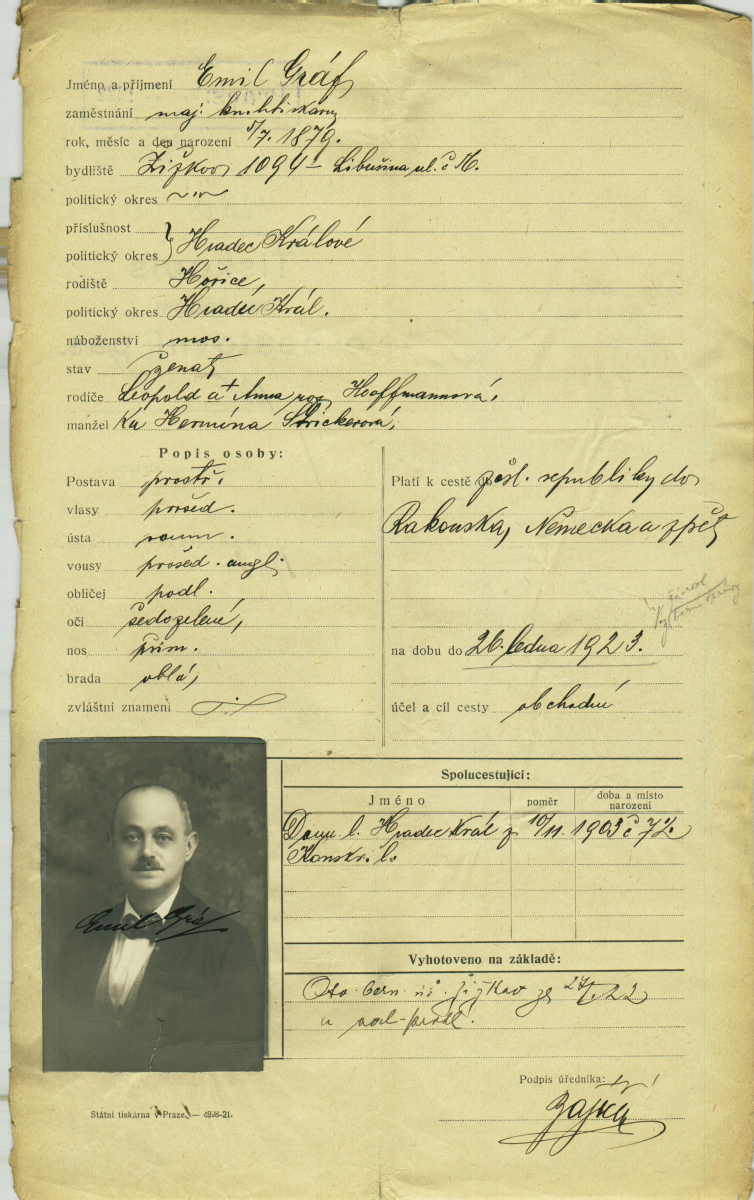 Jméno a příjmení Emil Gráf
zaměstnání maj. knihtiskárny
rok, měsíc a den narození 5/7. 1879.
bydliště Žižkov 1094 – Libušina ul. č
politický okres
příslušnost
politický okres } Hradec Králové
rodiště Hořice,
politický okres Hradec Král.
náboženství mos.
stav ženatý
rodiče Leopold a † Anna roz. Hoffmannová,
manžel ka Hermína Strickerová,
Popis osoby:
Postava prostř.
vlasy prošed.
ústa soum.
vousy prošed. angl.
obličej podl.
oči šedozelené,
nos přim.
brada oblá,
zvláštní znamení
Platí k cestě do z čsl. republiky do
Rakouska, Německa a zpět
na dobu do 26. ledna 1923.
účel a cíl cesty obchodní
Spolucestující:
Jméno poměr doba a místo narození
Domu. l. Hradec Král z 10/11. 1903 č
Vyhotoveno na základě:
Žižkov ze 22
Emil Gráf
Podpis úředníka:
Státní tiskárna v Praze. — 4898-21.